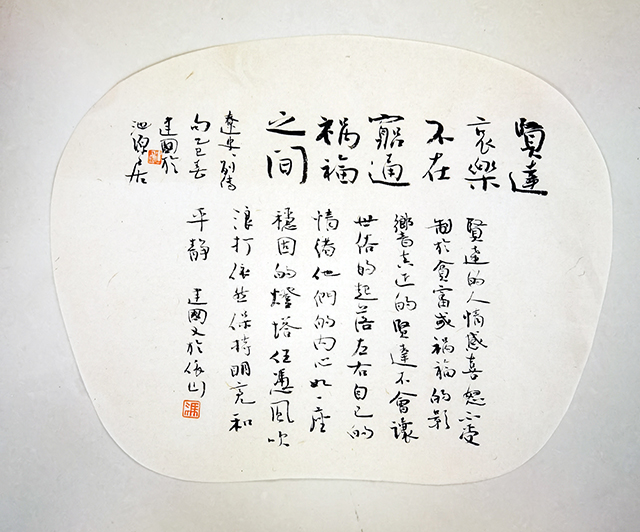 賢達
哀樂
不在
窮通
禍福
之間
遼史、列傳
句乙巳春
建國於
泗濱居
賢達的人情感喜怒不受
制於貧富或禍福的影
響真正的賢達不會讓
世俗的起落左右自己的
情緒他們的內心如一座
穩固的燈塔任憑風吹
浪打依然保持明亮和
平靜 建國又於依山